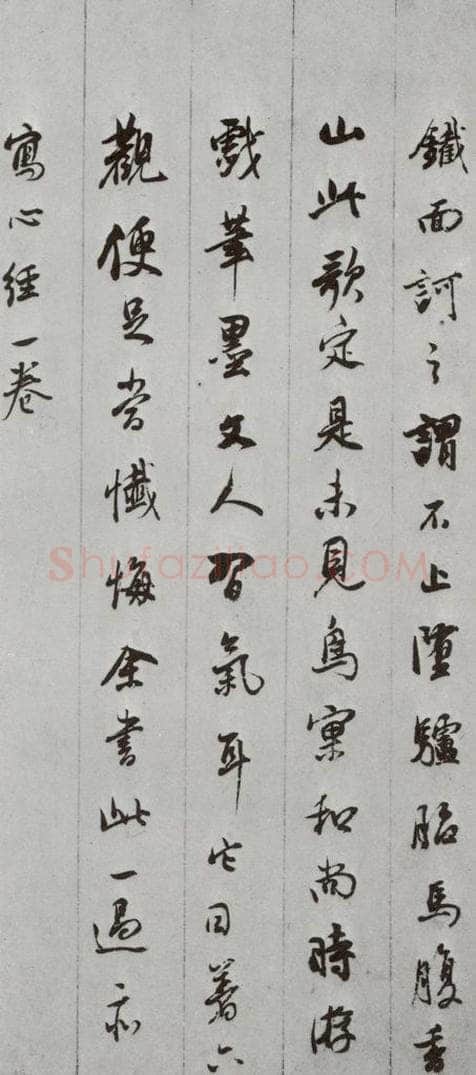 鐵面訶之謂不止墮驢胎馬腹香
山此歌定是未見鳥窠和尚時游
戲筆墨文人習氣耳它日著六
觀便足當懺悔余書此一過亦
寫心經一卷
Shufaziliao.COM